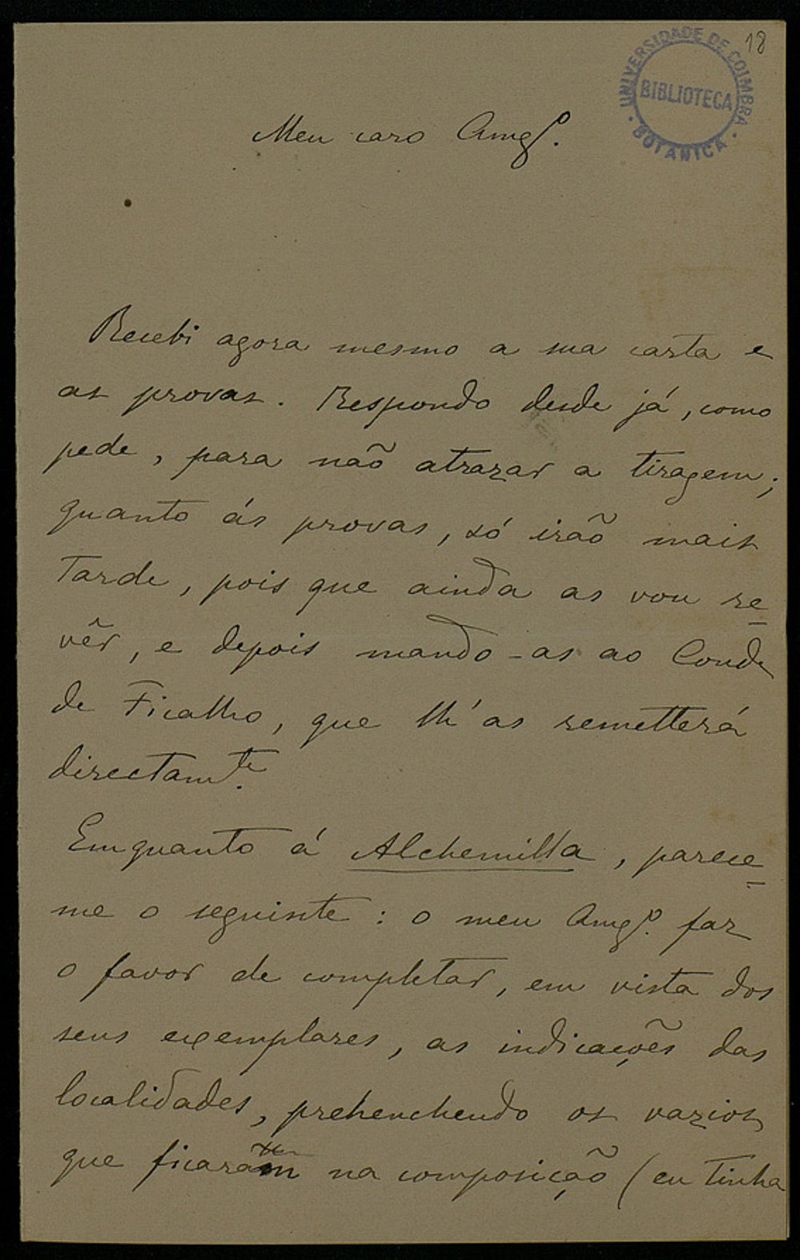 18
UNIVERSIDADE DE COIMBRA
BIBLIOTECA
BOTANICA
Meu caro Amgº.
Recebi agora mesmo a sua carta e
as provas. Respondo desde já, como
pede, para não atrazar a tiragem;
quanto ás provas, só irão mais
tarde, pois que ainda as vou re-
vêr, e depois mando-as ao Conde
de Ficalho, que lh'as remetterá
directamte.
Emquanto á Alchemilla, parece-
me o seguinte: o meu Amgº. faz
o favor de completar, em vista dos
seus exemplares, as indicações das
localidades, prehenchendo os vazios
que ficaram na composição (eu tinha